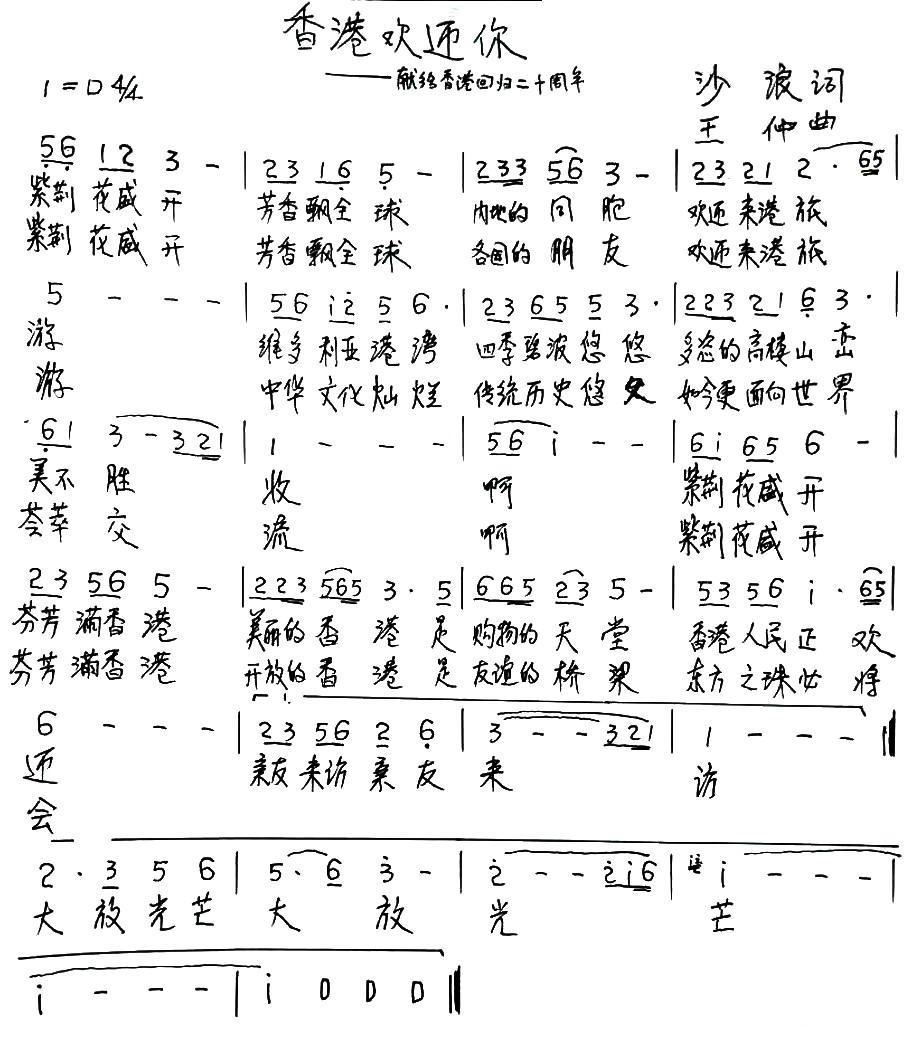 香港欢迎你
——献给香港回归二十周年
1=D 4/4
沙 浪 词
王 仲 曲
56 12 3 - | 23 16 5 - | 233 56 3 - | 23 21 2 · 65
紫荆 花盛 开 芳香飘全 球 内地的 同 胞 欢迎 来港 旅
紫荆 花盛 开 芳香飘全 球 各国的 朋 友 欢迎 来港 旅
5 - - - | 56 i2 5 6 · | 23 65 5 3 · | 223 21 6 3 · |
游 维多 利亚 港 湾 四季 碧波 悠 悠 多姿的 高楼 山 峦
游 中华 文化 灿 烂 传统 历史 悠 久 如今更 面向 世 界
61 3 - 321 | 1 - - - | 56 i - - | 6i 65 6 - |
美不 胜 收 啊 紫荆 花盛 开
荟萃 交 流 啊 紫荆 花盛 开
23 56 5 - | 223 565 3 · 5 | 665 23 5 - | 53 56 i · 65
芬芳 满香 港 美丽的 香 港 是 购物的 天 堂 香港 人民 正 欢
芬芳 满香 港 开放的 香 港 是 友谊的 桥 梁 东方 之珠 必 将
1.
6 - - - | 23 56 2 6 | 3 - - 321 | 1 - - -
迎 亲友 来访 亲 友 来 访
会
2 · 3 5 6 | 5 · 6 3 - | 2 - - 2i6 | i - - - |
大 放 光 芒 大 放 光 芒
i - - - | i 0 0 0